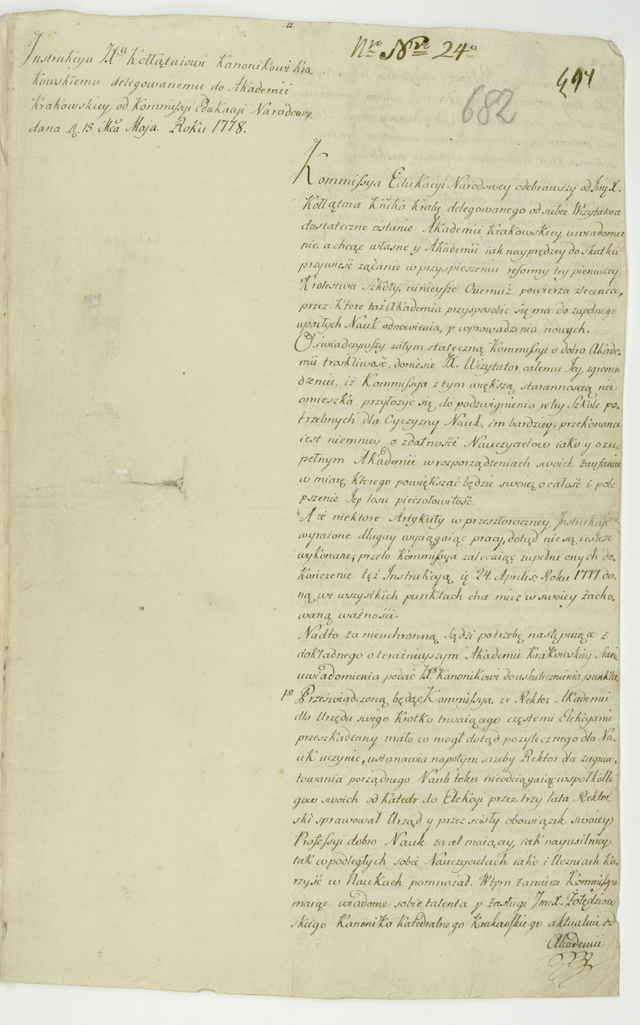 Instrukcya Xu Kołłątaiowi Kanonikowi Kra
kowskiemu delegowanemu do Akademii
Krakowskiey, od Kommissyi Edukacyi Narodowey
dana d. 15 Mca Maja Roku 1778.
Nro Nro 24o
682
Kommissya Edukacyi Narodowey odebrawszy od Jmć X.
Kołłątaia Knika Krakgo delegowanego od siebie Wizytatora
dostateczne o stanie Akademii Krakowskiey uwiadomie
nie, a chcąc własne y Akademii iak nayprędzey do skutku
przywieść żądanie w przyspieszeniu reformy tey pierwszey
Królestwa Szkoły, ninieysze Onemuż powierza zlecenia,
przez które taż Akademia przysposobić się ma do zupełnego
upadłych Nauk odnowienia, y wprowadzenia nowych.
Oświadczywszy zatym stateczną Kommissyi o dobro Akade
mii troskliwość, doniesie X. Wizytator całemu Jey zgroma
dzeniu, iż Kommissya z tym większą starannością nie
omieszka przyłożyć się do podźwignienia w tey Szkole po
trzebnych dla Oyczyzny Nauk, im bardziey przekonana
iest niemniey o zdatności Nauczycielów iako y o zu
pełnym Akademii w rozporządzeniach swoich zaufaniu
w miarę, którego powiększać będzie swoię o całość i pole
pszenie Jey losu pieczołowitość.
A że niektóre Artykuły w przeszłoroczney Instrukcyi
wyrażone dłuższey wyciągaiąc pracy, dotąd nie są ieszcze
wykonane, przeto Kommissya zalecaiąc zupełne onych do
kończenie, też Instrukcyą die 24. Aprilis Roku 1777 da
ną, we wszystkich punktach chce mieć w swoiey zacho
waną ważności.
Nadto za nieuchronną sądzi potrzebę następuiące z
dokładnego o teraźnieyszym Akademii Krakowskiey Stanie
uwiadomienia podać Xu Kanonikowi do uskutecznienia punkta.
1o Przeświadczoną będąc Kommissya, że Rektor Akademii
dla Urzędu swego krotko trwaiącego częstemi Elekcyami
przeszkadzany mało co mógł dotąd pożytecznego dla Na
uk uczynić, ustanawia na potym, ażeby Rektor dla zagrun
towania porządnego Nauk toku nieodciągaiąc współkolle
gów swoich od Katedr do Elekcyi przez trzy lata Rektor
ski sprawował Urząd y przez ścisły obowiązek swoiey
Professyi dobro Nauk za cel maiącey, iak nayusilniey
tak w podległych sobie Nauczycielach iako i Uczniach ko
rzyść w Naukach pomnażał. W tym zamiarze Kommissya
maiąc wiadome sobie talenta y zasługi Jmć X. Żołędziow
skiego Kanonika Katedralnego Krakowskiego aktualnie
Akademii